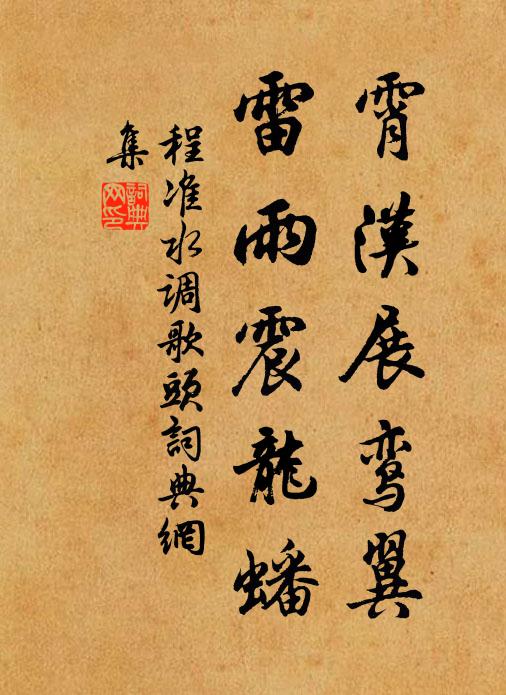 霄漢展鸾翼
雷雨震龍蟠
程准水调歌頭詞典網
集
詞典网印